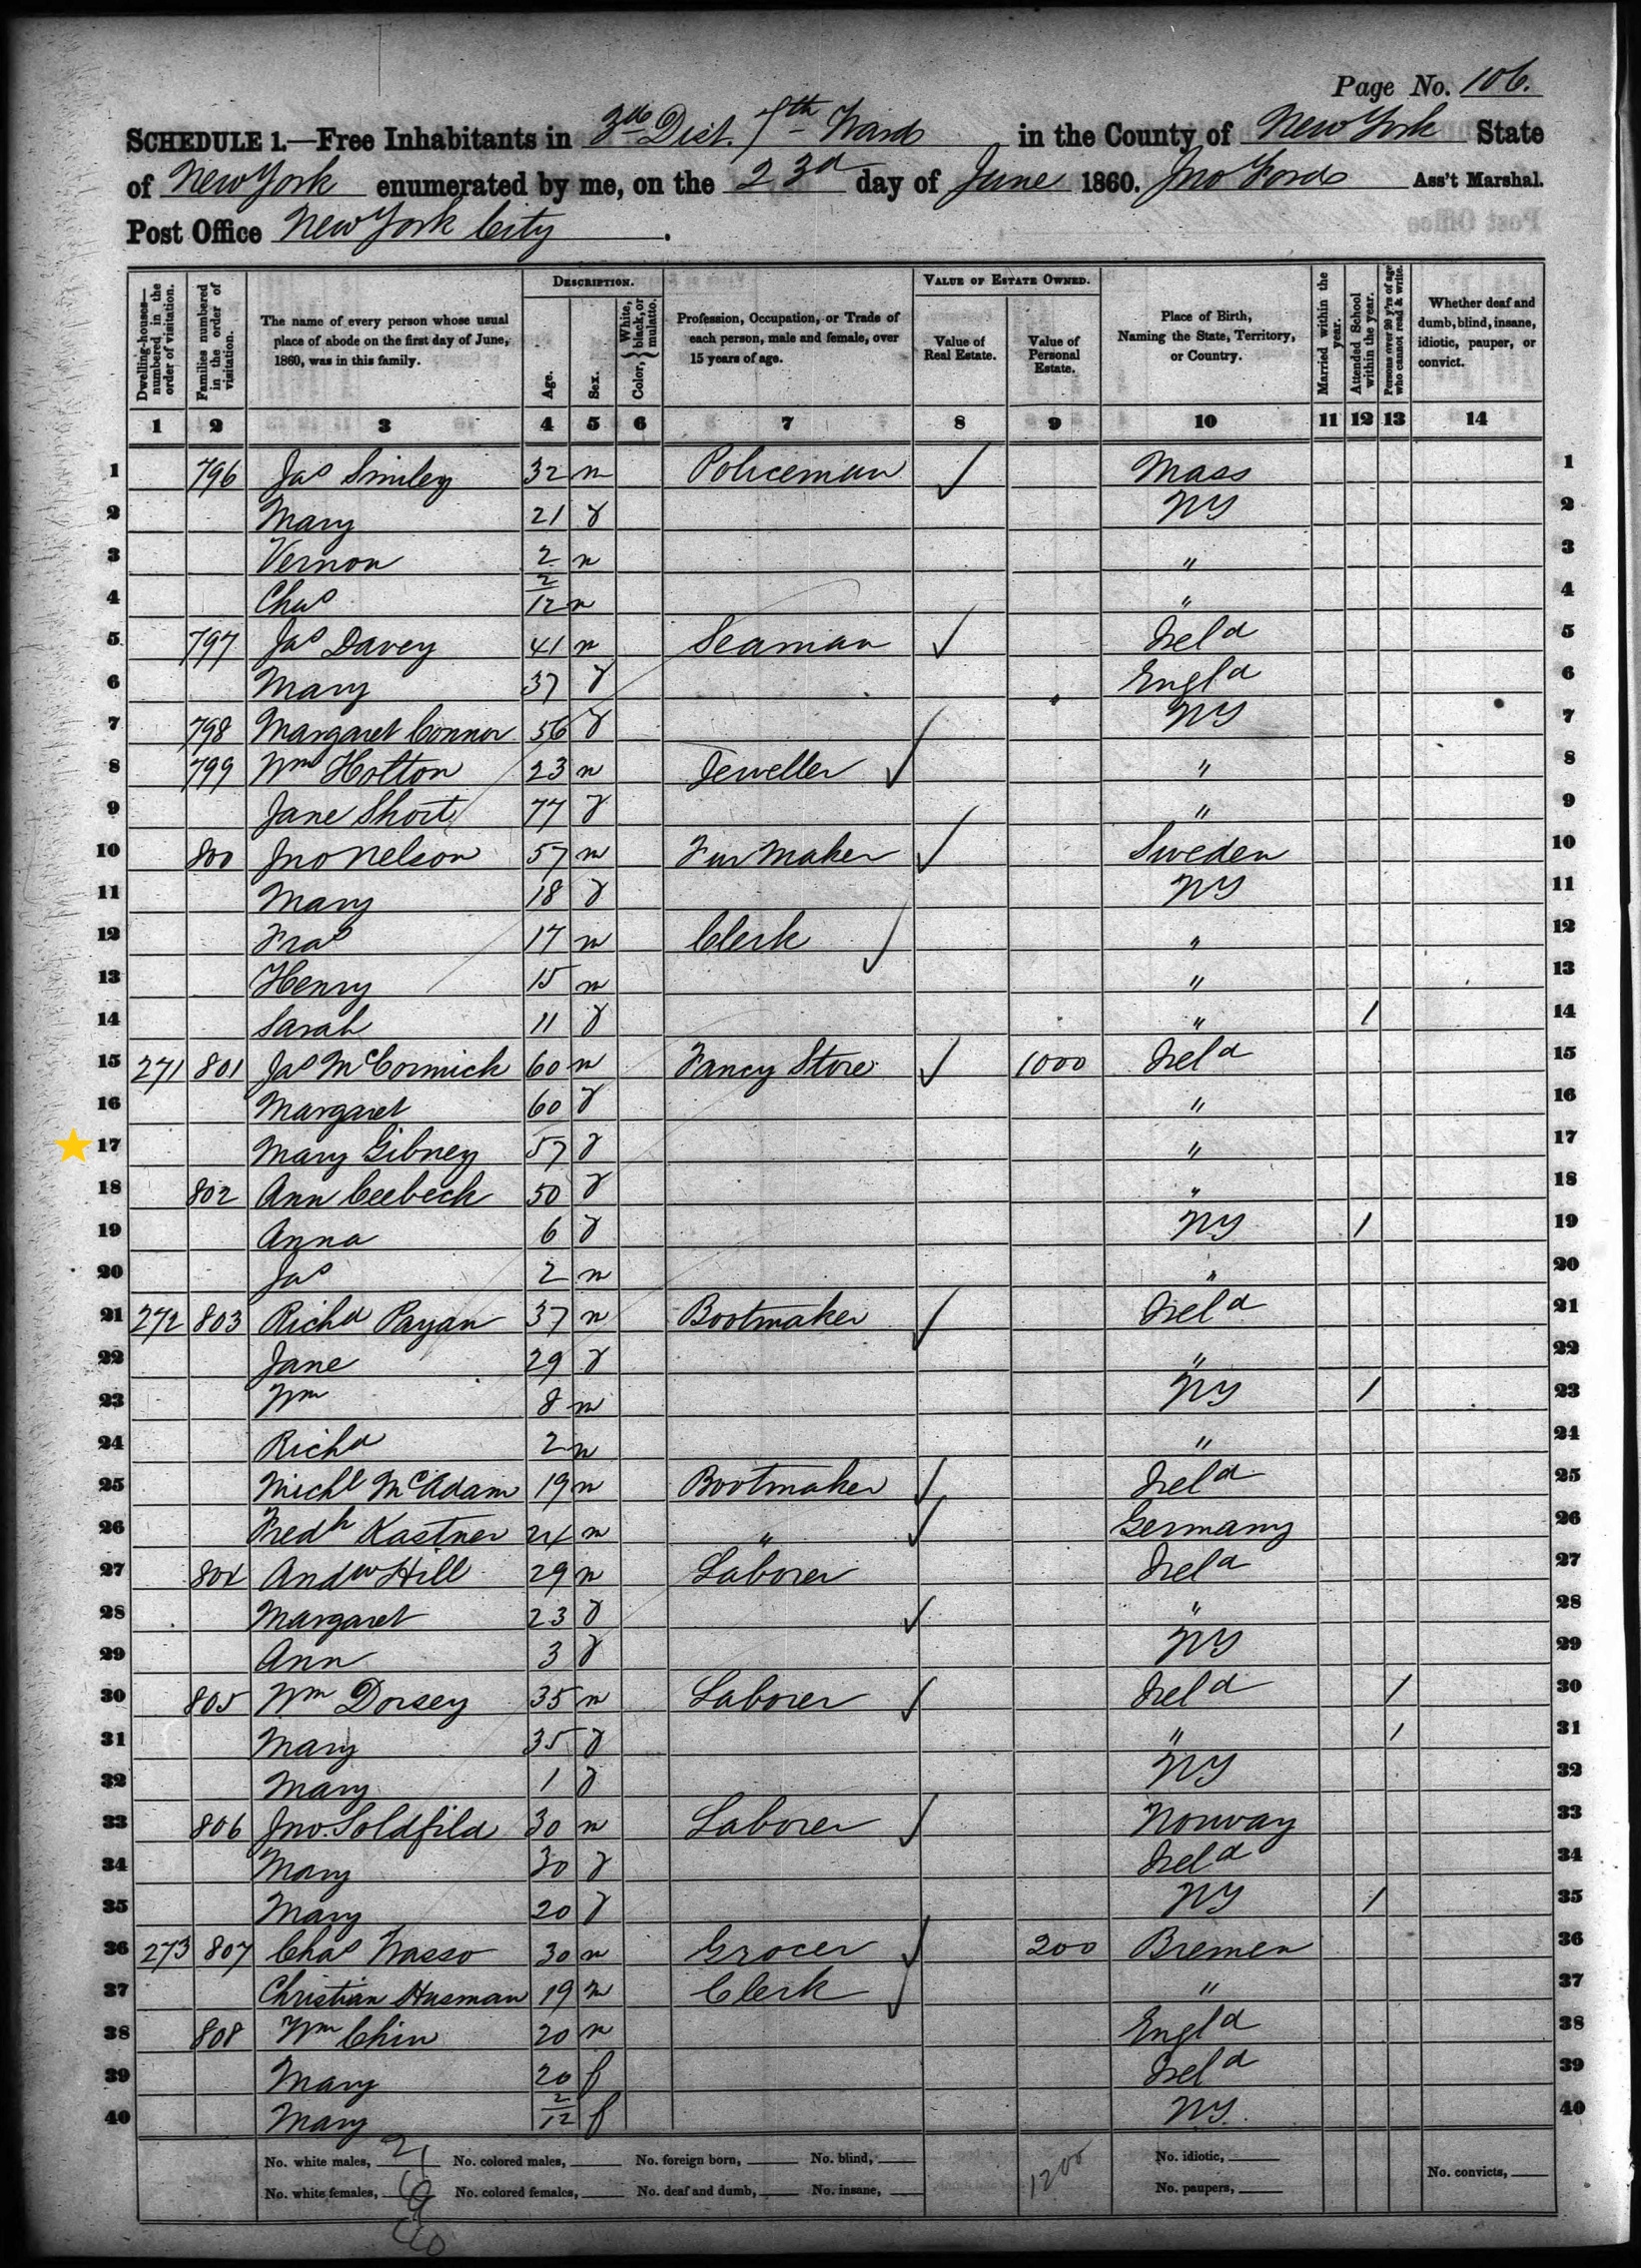 Page No. 106.
SCHEDULE 1.—Free Inhabitants in 3d Dist. 7th Ward in the County of New York State
of New York enumerated by me, on the 23d day of June 1860. Jno Ford Ass't Marshal.
Post Office New York City.
Dwelling-houses—numbered in the order of visitation. Families numbered in the order of visitation. The name of every person whose usual place of abode on the first day of June, 1860, was in this family. DESCRIPTION. Age. Sex. Color, White, black, or mulatto. Profession, Occupation, or Trade of each person, male and female, over 15 years of age. VALUE OF ESTATE OWNED. Value of Real Estate. Value of Personal Estate. Place of Birth, Naming the State, Territory, or Country. Married within the year. Attended School within the year. Persons over 20 y'rs of age who cannot read & write. Whether deaf and dumb, blind, insane, idiotic, pauper, or convict.
1 2 3 4 5 6 7 8 9 10 11 12 13 14
1 796 Jas Smiley 32 m Policeman ✓ Mass 1
2 Mary 21 f NY 2
3 Vernon 2 m " 3
4 Chas 2/12 m " 4
5 797 Jas Davey 41 m Seaman ✓ Ireld 5
6 Mary 37 f Engld 6
7 798 Margaret Connor 56 f NY 7
8 799 Wm Holton 23 m Jeweller ✓ " 8
9 Jane Short 77 f " 9
10 800 Jno Nelson 57 m Fur Maker ✓ Sweden 10
11 Mary 18 f NY 11
12 Fras 17 m Clerk ✓ " 12
13 Henry 15 m " 13
14 Sarah 11 f " / 14
15 271 801 Jas McCormick 60 m Fancy Store ✓ 1000 Ireld 15
16 Margaret 60 f " 16
17 Mary Gibney 57 f " 17
18 802 Ann Ceebeck 50 f " 18
19 Anna 6 f NY / 19
20 Jas 2 m " 20
21 272 803 Richd Payan 37 m Bootmaker ✓ Ireld 21
22 Jane 29 f " 22
23 Wm 8 m NY / 23
24 Richd 2 m " 24
25 Michl McAdam 19 m Bootmaker ✓ Ireld 25
26 Fredk Kastner 24 m " ✓ Germany 26
27 804 Andw Hill 29 m Laborer Ireld 27
28 Margaret 23 f ✓ " 28
29 Ann 3 f NY 29
30 805 Wm Dorsey 35 m Laborer ✓ Ireld / 30
31 Mary 35 f " / 31
32 Mary 1 f NY 32
33 806 Jno. Soldfild 30 m Laborer ✓ Norway 33
34 Mary 30 f Ireld 34
35 Mary 20 f NY / 35
36 273 807 Chas Wasso 30 m Grocer ✓ 200 Bremen 36
37 Christian Husman 19 m Clerk ✓ " 37
38 808 Wm Chin 20 m Engld 38
39 Mary 20 f Ireld 39
40 Mary 2/12 f NY. 40
No. white males, 21 No. colored males, No. foreign born, No. blind, 1200 No. idiotic, No. convicts,
No. white females, 19 No. colored females, No. deaf and dumb, No. insane, No. paupers,
40